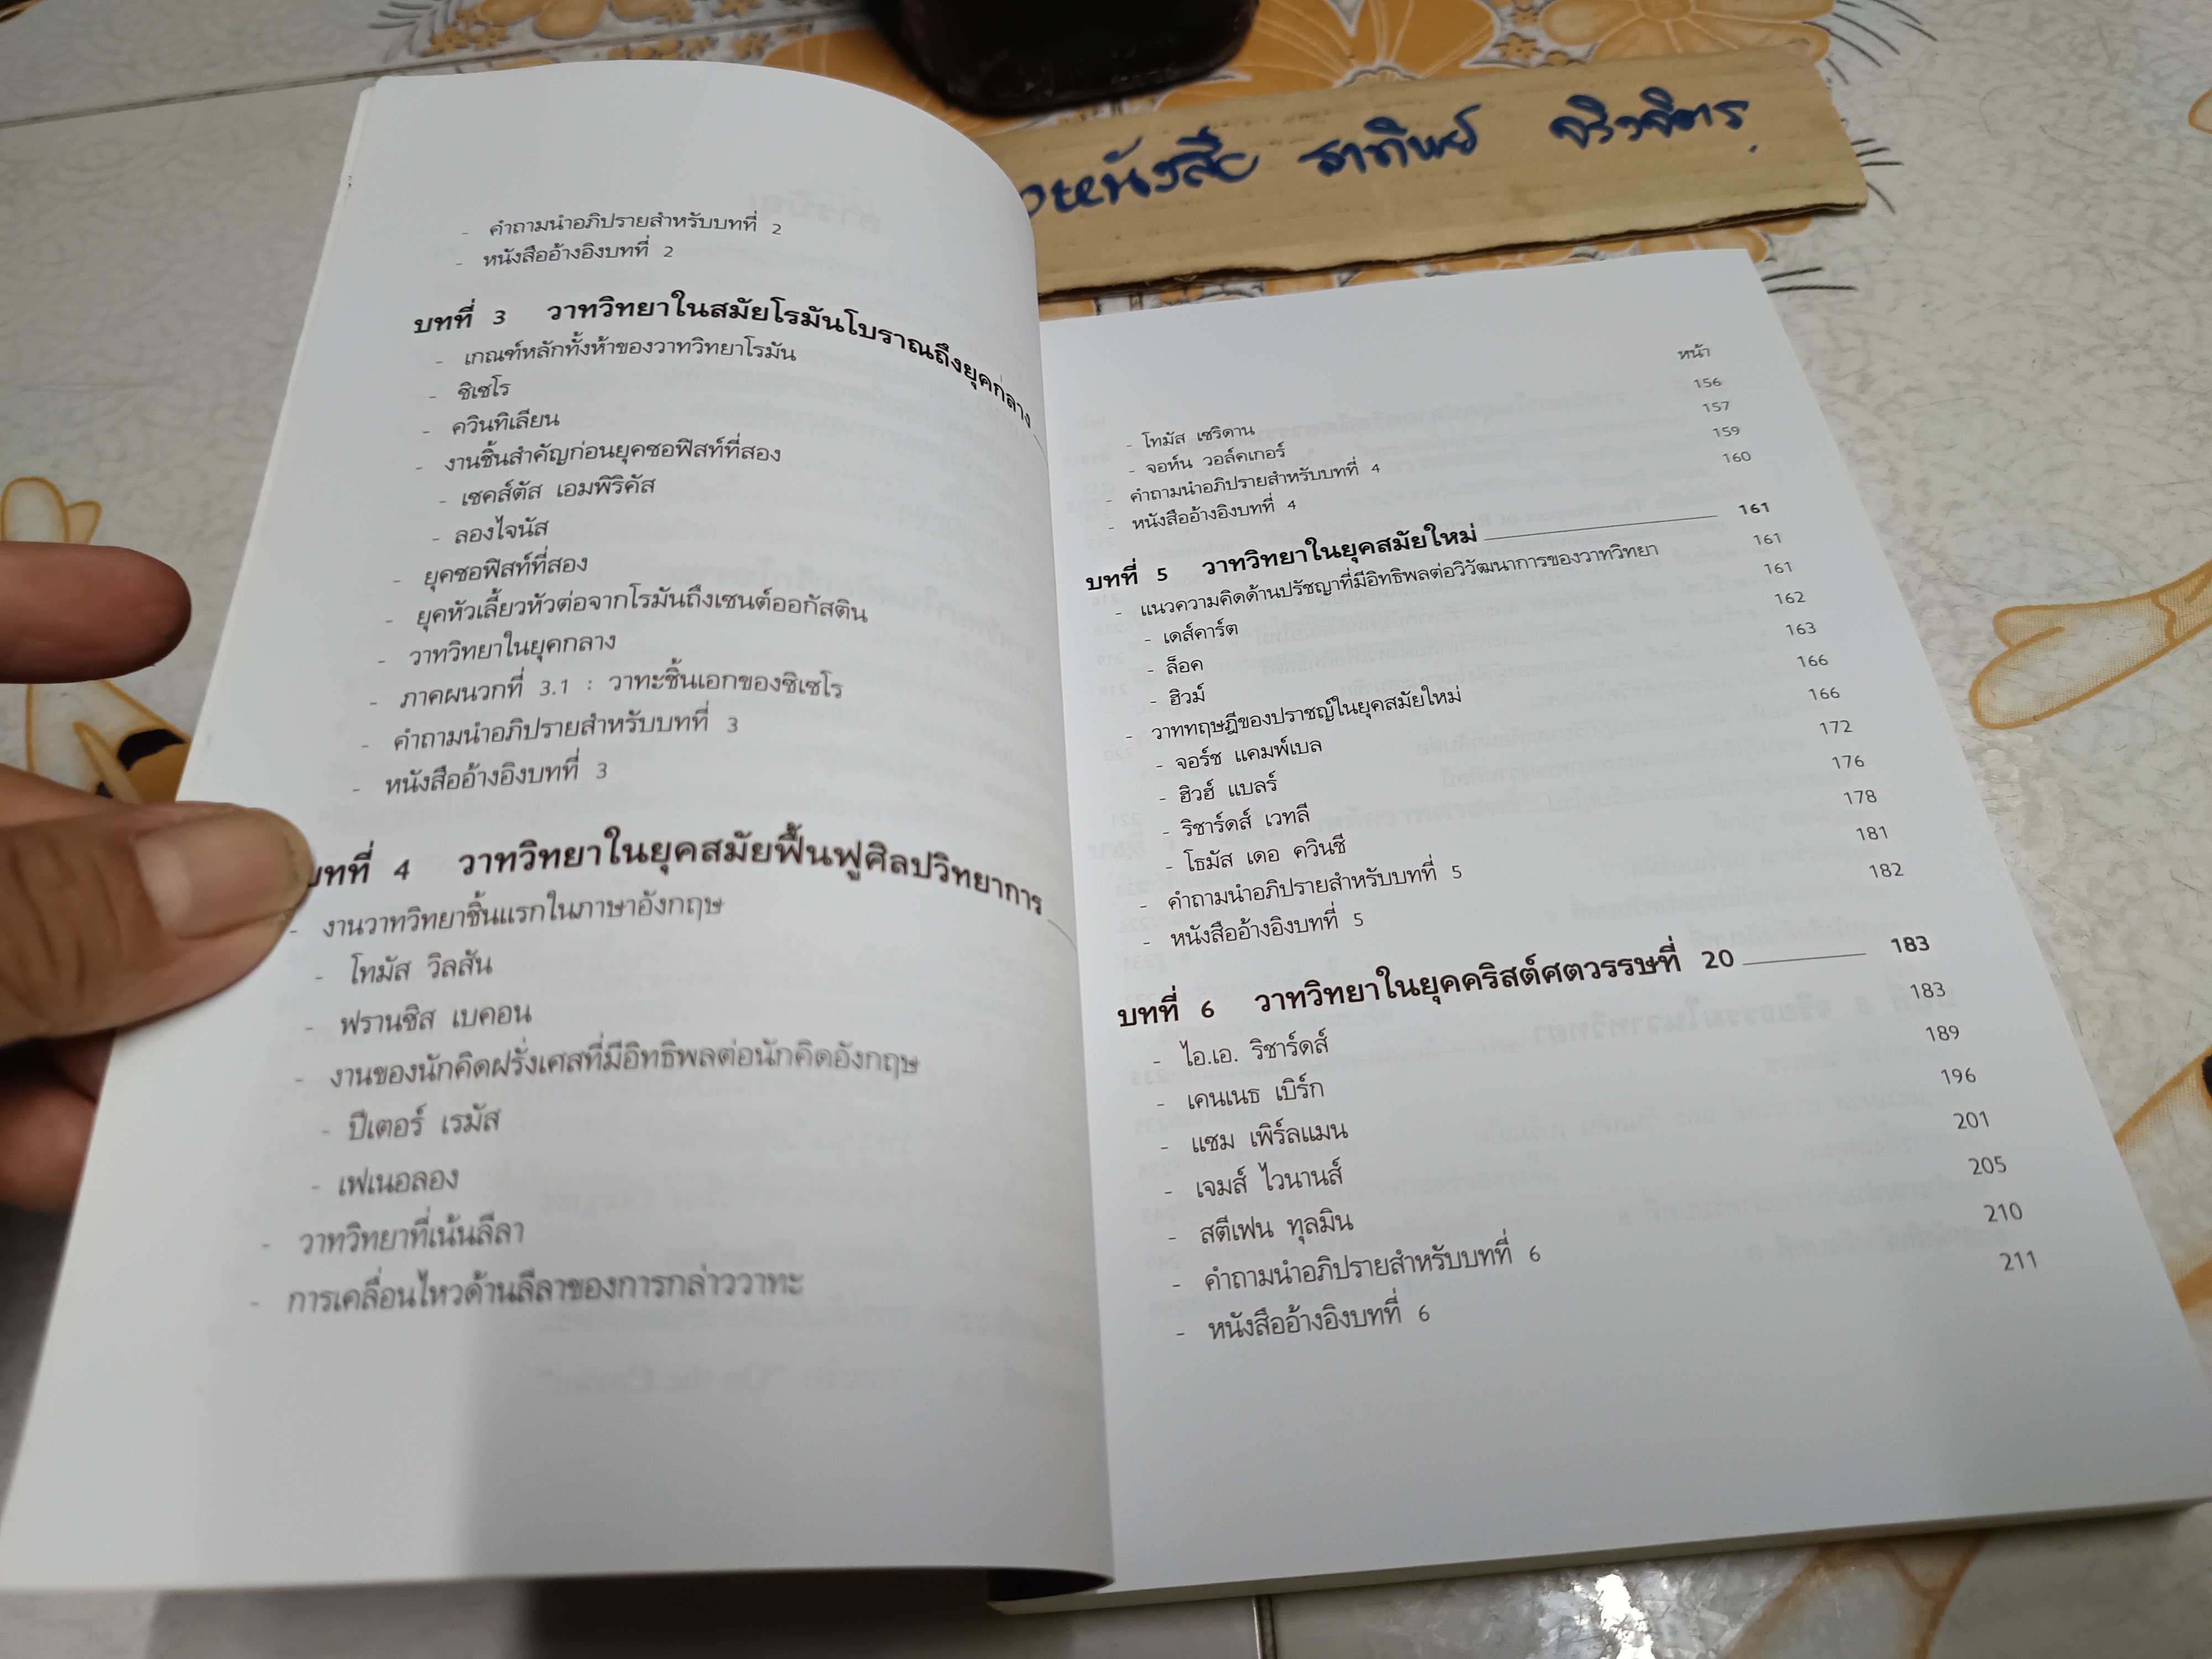 - คำถามนำอภิปรายสำหรับบทที่ 2
- หนังสืออ้างอิงบทที่ 2
บทที่ 3 วาทวิทยาในสมัยโรมันโบราณถึงยุคกลาง
- เกณฑ์หลักทั้งห้าของวาทวิทยาโรมัน
- ซิเซโร
- ควินทิเลียน
- งานชิ้นสำคัญก่อนยุคซอฟิสท์ที่สอง
- เซคส์ตัส เอมพิริคัส
- ลองไจนัส
- ยุคซอฟิสท์ที่สอง
- ยุคหัวเลี้ยวหัวต่อจากโรมันถึงเซนต์ออกัสติน
- วาทวิทยาในยุคกลาง
- ภาคผนวกที่ 3.1 : วาทะชิ้นเอกของซิเซโร
- คำถามนำอภิปรายสำหรับบทที่ 3
- หนังสืออ้างอิงบทที่ 3
บทที่ 4 วาทวิทยาในยุคสมัยฟื้นฟูศิลปวิทยาการ
- งานวาทวิทยาชิ้นแรกในภาษาอังกฤษ
- โทมัส วิลสัน
- ฟรานซิส เบคอน
- งานของนักคิดฝรั่งเศสที่มีอิทธิพลต่อนักคิดอังกฤษ
- ปีเตอร์ เรมัส
- เฟเนอลอง
- วาทวิทยาที่เน้นลีลา
- การเคลื่อนไหวด้านลีลาของการกล่าววาทะ
หนังสือ ธาทิพย์
หน้า
- โทมัส เชริดาน 156
- จอห์น วอล์คเกอร์ 157
- คำถามนำอภิปรายสำหรับบทที่ 4 159
- หนังสืออ้างอิงบทที่ 4 160
บทที่ 5 วาทวิทยาในยุคสมัยใหม่ 161
- แนวความคิดด้านปรัชญาที่มีอิทธิพลต่อวิวัฒนาการของวาทวิทยา 161
- เดส์คาร์ต 161
- ล็อค 162
- ฮิวม์ 163
- วาททฤษฎีของปราชญ์ในยุคสมัยใหม่ 166
- จอร์ช แคมพ์เบล 166
- ฮิวฮ์ แบลร์ 172
- ริชาร์ดส์ เวทลี 176
- โธมัส เดอ ควินซี 178
- คำถามนำอภิปรายสำหรับบทที่ 5 181
- หนังสืออ้างอิงบทที่ 5 182
บทที่ 6 วาทวิทยาในยุคคริสต์ศตวรรษที่ 20 183
- ไอ.เอ. ริชาร์ดส์ 183
- เคนเนธ เบิร์ก 189
- แชม เพิร์ลแมน 196
- เจมส์ ไวนานส์ 201
- สตีเฟน ทุลมิน 205
- คำถามนำอภิปรายสำหรับบทที่ 6 210
- หนังสืออ้างอิงบทที่ 6 211